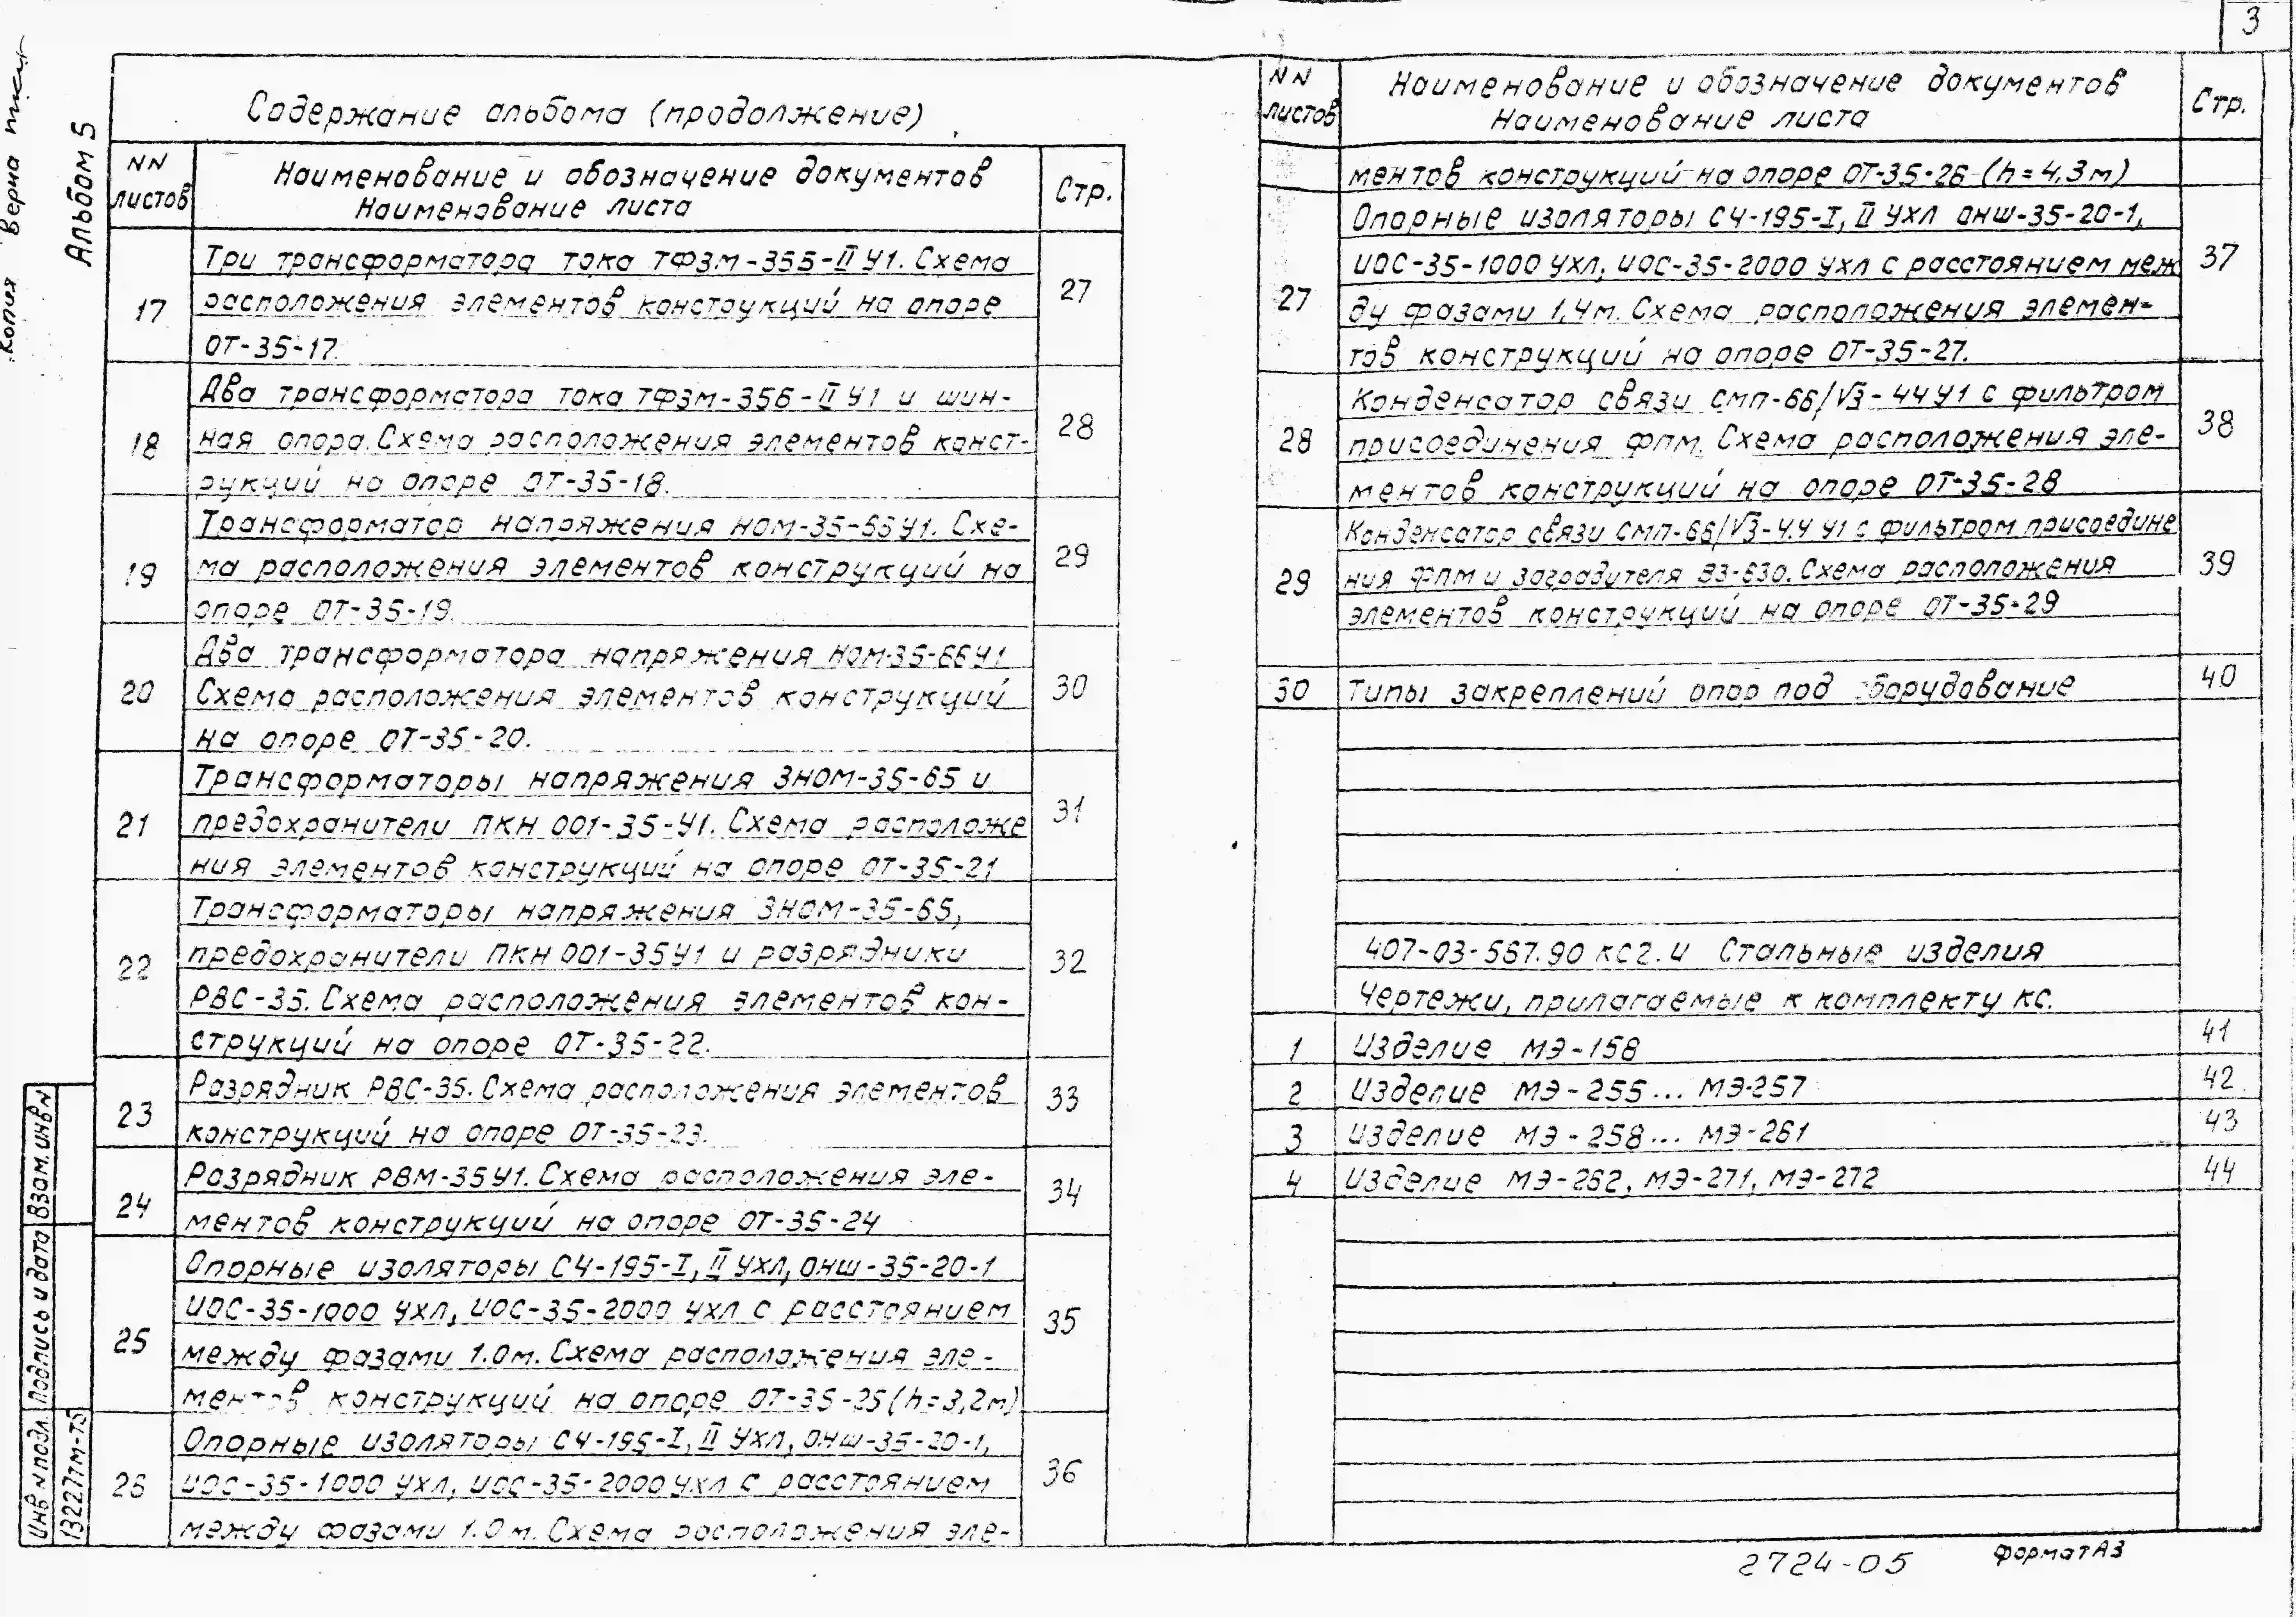 3
Копия Верна
Альбом 5
Содержание альбома (продолжение)
NN листов
Наименование и обозначение документов
Наименование листа
Стр.
17
Три трансформатора тока ТФЗМ-35Б-II У1. Схема
расположения элементов конструкций на опоре
ОТ-35-17.
27
18
Два трансформатора тока ТФЗМ-35Б-II У1 и шин-
ная опора. Схема расположения элементов конст-
рукций на опоре ОТ-35-18.
28
19
Трансформатор напряжения НОМ-35-66У1. Схе-
ма расположения элементов конструкций на
опоре ОТ-35-19.
29
20
Два трансформатора напряжения НОМ-35-66У1
Схема расположения элементов конструкций
на опоре ОТ-35-20.
30
21
Трансформаторы напряжения ЗНОМ-35-65 и
предохранители ПКН 001-35-У1. Схема расположе
ния элементов конструкций на опоре ОТ-35-21
31
22
Трансформаторы напряжения ЗНОМ-35-65,
предохранители ПКН 001-35У1 и разрядники
РВС-35. Схема расположения элементов кон-
струкций на опоре ОТ-35-22.
32
23
Разрядник РВС-35. Схема расположения элементов
конструкций на опоре ОТ-35-23.
33
24
Разрядник РВМ-35У1. Схема расположения эле-
ментов конструкций на опоре ОТ-35-24
34
25
Опорные изоляторы СЧ-195-I, II УХЛ, ОНШ-35-20-1
ИОС-35-1000 УХЛ, ИОС-35-2000 УХЛ с расстоянием
между фазами 1.0м. Схема расположения эле-
ментов конструкций на опоре ОТ-35-25 (h=3,2м)
35
26
Опорные изоляторы СЧ-195-I, II УХЛ, ОНШ-35-20-1,
ИОС-35-1000 УХЛ, ИОС-35-2000 УХЛ с расстоянием
между фазами 1.0м. Схема расположения эле-
36
NN листов
Наименование и обозначение документов
Наименование листа
Стр.
ментов конструкций на опоре ОТ-35-26 (h=4,3м)
27
Опорные изоляторы СЧ-195-I, II УХЛ ОНШ-35-20-1,
ИОС-35-1000 УХЛ, ИОС-35-2000 УХЛ с расстоянием меж
ду фазами 1,4м. Схема расположения элемен-
тов конструкций на опоре ОТ-35-27.
37
28
Конденсатор связи СМП-66/√3-4,4У1 с фильтром
присоединения ФПМ. Схема расположения эле-
ментов конструкций на опоре ОТ-35-28
38
29
Конденсатор связи СМП-66/√3-4.4 У1 с фильтром присоедине
ния ФПМ и заградителя ВЗ-630. Схема расположения
элементов конструкций на опоре ОТ-35-29
39
30
Типы закреплений опор под оборудование
40
407-03-567.90 КС2.И Стальные изделия
Чертежи, прилагаемые к комплекту КС.
1
Изделие МЭ-158
41
2
Изделие МЭ-255... МЭ-257
42
3
Изделие МЭ-258... МЭ-261
43
4
Изделие МЭ-262, МЭ-271, МЭ-272
44
Взам. инв N
Подпись и дата
Инв N подл.
13227тм-т5
2724-05
Формат А3